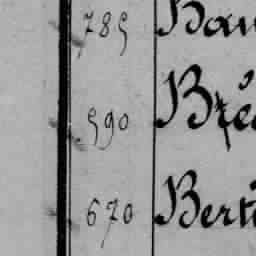 785 Bau
590 Bré
670 Bert